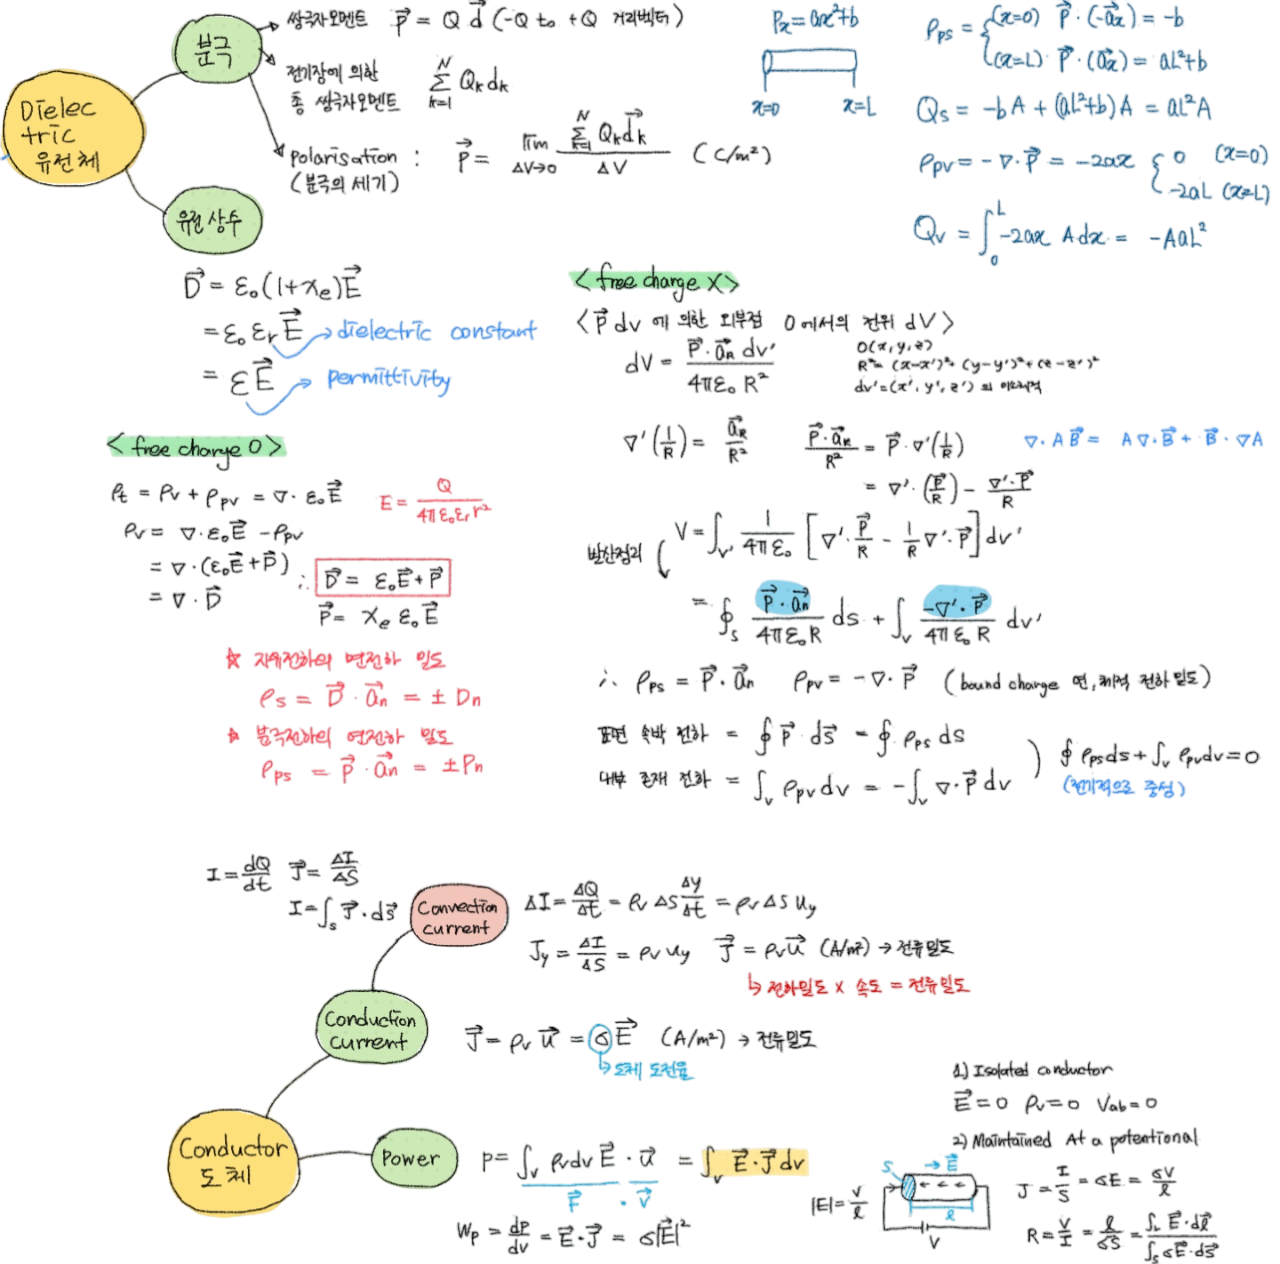 Dielec
tric
유전체
분극
유전상수
쌍극자모멘트 P⃗ = Q d⃗ (-Q to +Q 거리벡터)
전기장에 의한
총 쌍극자모멘트 ∑_{k=1}^{N} Q_k d_k
Polarisation : P⃗ = lim_{ΔV→0} (∑_{k=1}^{N} Q_k d⃗_k)/ΔV (C/m²)
(분극의 세기)
P_x = ax²+b
x=0 x=L
ρ_ps = { (x=0) P⃗·(-a⃗_x) = -b
(x=L) P⃗·(a⃗_x) = aL²+b
Q_s = -bA + (aL²+b)A = aL²A
ρ_pv = -∇·P⃗ = -2ax { 0 (x=0)
-2aL (x=L)
Q_v = ∫_0^L -2ax A dx = -AaL²
D⃗ = ε₀(1+χ_e)E⃗
= ε₀ ε_r E⃗ → dielectric constant
= εE⃗ → permittivity
<free charge O>
ρ_t = ρ_v + ρ_pv = ∇·ε₀E⃗
E = Q/(4πε₀ε_r r²)
ρ_v = ∇·ε₀E⃗ - ρ_pv
= ∇·(ε₀E⃗+P⃗)
= ∇·D⃗
∴ D⃗ = ε₀E⃗+P⃗
P⃗ = χ_e ε₀E⃗
☆ 자유전하의 면전하 밀도
ρ_s = D⃗·a⃗_n = ±D_n
☆ 분극전하의 면전하 밀도
ρ_ps = P⃗·a⃗_n = ±P_n
<free charge X>
<P⃗dv 에 의한 외부점 O에서의 전위 dV>
dV = (P⃗·a⃗_R dv')/(4πε₀R²)
O(x,y,z)
R² = (x-x')²+(y-y')²+(z-z')²
dv'=(x',y',z') 의 미소체적
∇'(1/R) = a⃗_R/R² (P⃗·a⃗_R)/R² = P⃗·∇'(1/R)
∇·AB⃗ = A∇·B⃗ + B⃗·∇A
= ∇'·(P⃗/R) - (∇'·P⃗)/R
발산정리
V = ∫_{V'} 1/(4πε₀) [∇'·P⃗/R - 1/R ∇'·P⃗] dv'
= ∮_S (P⃗·a⃗_n)/(4πε₀R) ds + ∫_V (-∇'·P⃗)/(4πε₀R) dv'
∴ ρ_ps = P⃗·a⃗_n ρ_pv = -∇·P⃗ (bound charge 면, 체적 전하 밀도)
표면 속박 전하 = ∮P⃗·ds⃗ = ∮ρ_ps ds
내부 존재 전하 = ∫_V ρ_pv dv = -∫_V ∇·P⃗ dv
∮ρ_ps ds + ∫_V ρ_pv dv = 0
(전기적으로 중성)
I = dQ/dt J⃗ = ΔI/ΔS
I = ∫_S J⃗·ds⃗
Convection
current
ΔI = ΔQ/Δt = ρ_v ΔS Δy/Δt = ρ_v ΔS u_y
J_y = ΔI/ΔS = ρ_v u_y J⃗ = ρ_v u⃗ (A/m²) → 전류밀도
↳ 전하밀도 x 속도 = 전류밀도
Conduction
current
J⃗ = ρ_v u⃗ = σE⃗ (A/m²) → 전류밀도
↳ 도체 도전율
Conductor
도체
Power
P = ∫_V ρ_v dv E⃗·u⃗ = ∫_V E⃗·J⃗ dv
F⃗ · v⃗
W_p = dP/dv = E⃗·J⃗ = σ|E⃗|²
1) Isolated conductor
E⃗ = 0 ρ_v = 0 V_ab = 0
2) Maintained At a potentional
S → E⃗
l
V
|E| = V/l
J = I/S = σE = σV/l
R = V/I = l/σS = (∫_L E⃗·dl⃗)/(∫_S σE⃗·ds⃗)